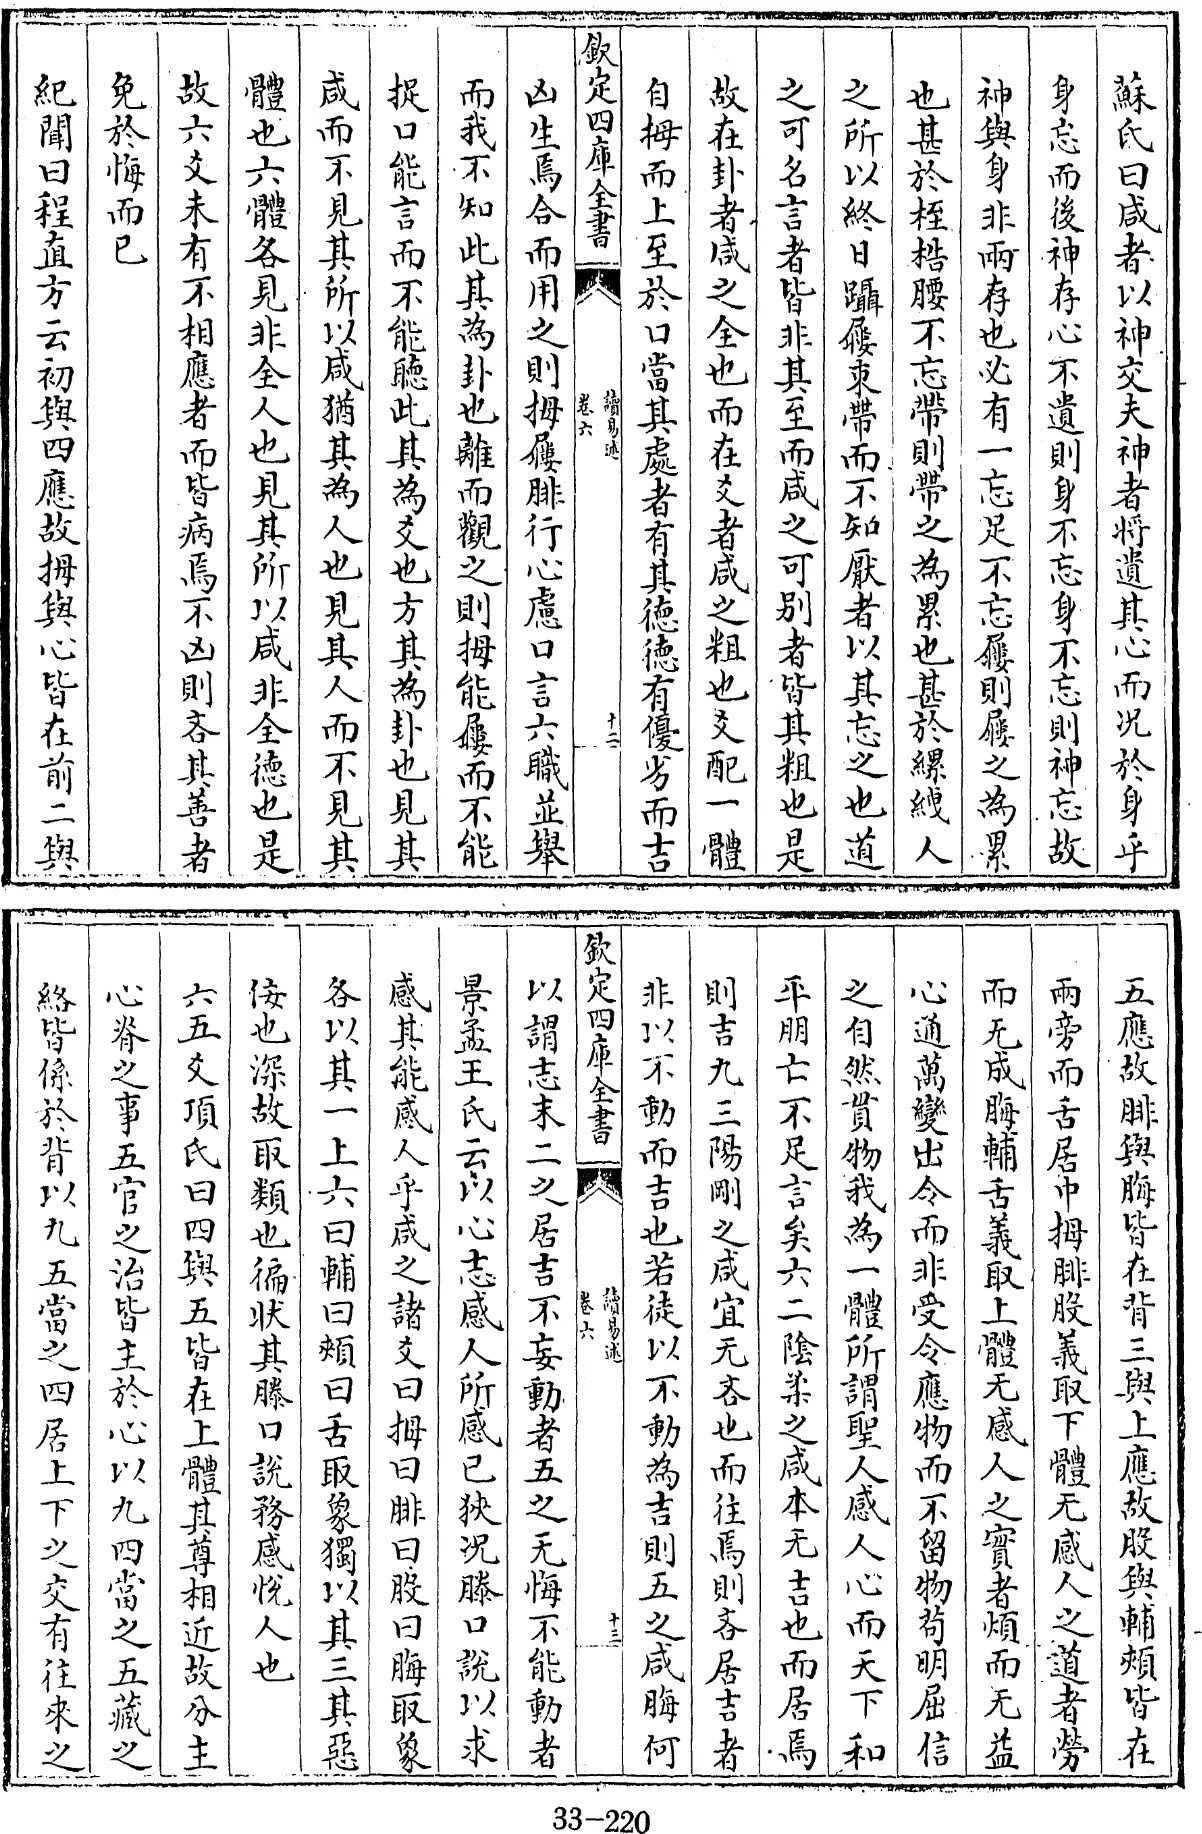 蘇氏曰咸者以神交夫神者將遺其心而况於身乎
身忘而後神存心不遺則身不忘身不忘則神忘故
神與身非兩存也必有一忘足不忘屨則屨之為累
也甚於桎梏腰不忘帶則帶之為累也甚於縲絏人
之所以終日躡屨束帶而不知厭者以其忘之也道
之可名言者皆非其至而咸之可别者皆其粗也是
故在卦者咸之全也而在爻者咸之粗也爻配一體
自拇而上至於口當其處者有其徳徳有優劣而吉
欽定四庫全書
讀易述
卷六
十二
凶生焉合而用之則拇屨腓行心慮口言六職並舉
而我不知此其為卦也離而觀之則拇能屨而不能
捉口能言而不能聴此其為爻也方其為卦也見其
咸而不見其所以咸猶其為人也見其人而不見其
體也六體各見非全人也見其所以咸非全徳也是
故六爻未有不相應者而皆病焉不凶則吝其善者
免於悔而已
紀聞曰程直方云初與四應故拇與心皆在前二與
五應故腓與脢皆在背三與上應故股與輔頰皆在
兩旁而舌居中拇腓股義取下體无感人之道者勞
而无成脢輔舌義取上體无感人之實者煩而无益
心通萬變出令而非受令應物而不留物茍明屈信
之自然貫物我為一體所謂聖人感人心而天下和
平朋亡不足言矣六二隂柔之咸本无吉也而居焉
則吉九三陽剛之咸宜无吝也而往焉則吝居吉者
非以不動而吉也若徒以不動為吉則五之咸脢何
欽定四庫全書
讀易述
卷六
十三
以謂志末二之居吉不妄動者五之无悔不能動者
景孟王氏云以心志感人所感已狹况滕口説以求
感其能感人乎咸之諸爻曰拇曰腓曰股曰脢取象
各以其一上六曰輔曰頰曰舌取象獨以其三其惡
佞也深故取類也徧狀其滕口説務感悦人也
六五爻項氏曰四與五皆在上體其尊相近故分主
心脊之事五官之治皆主於心以九四當之五藏之
絡皆係於背以九五當之四居上下之交有往來之
33-220